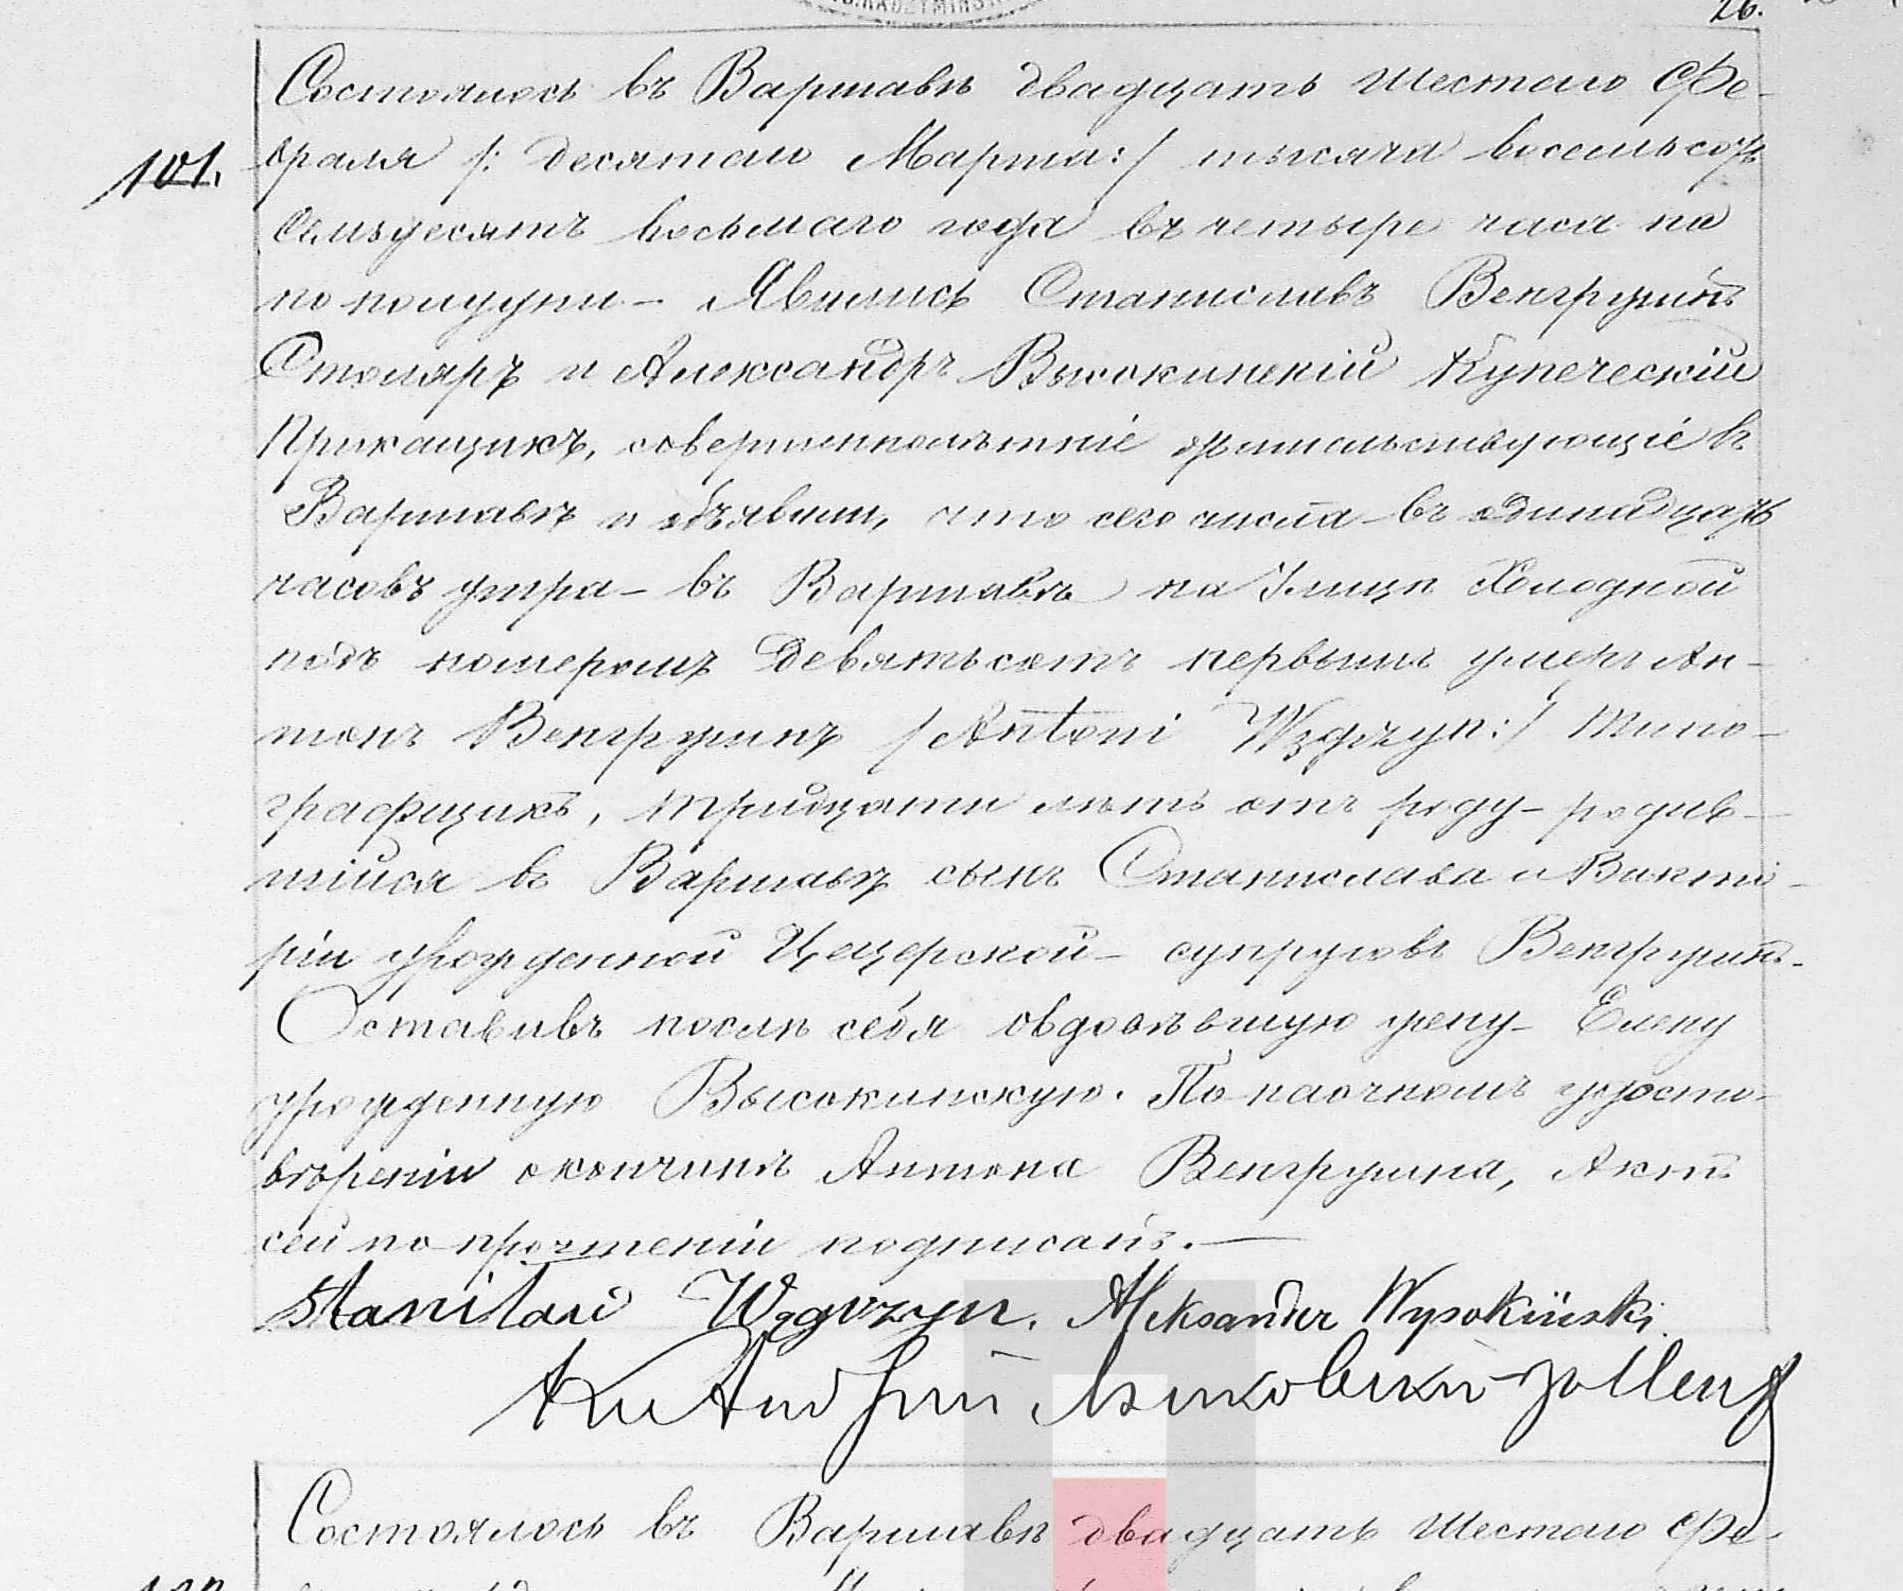 26.
101.
Состоялось въ Варшавѣ двадцать шестаго Фе-
враля /: десятаго Марта :/ тысяча восемьсотъ
семьдесятъ восьмаго года въ четыре часа по
по полудни – Явились Станиславъ Венгржинъ
Столяръ и Александръ Высокинскій Купеческій
Прикащикъ, совершеннолѣтніе жительствующіе въ
Варшавѣ и объявили, что сего числа – въ одинадцать
часовъ утра – въ Варшавѣ на Улицѣ Холодной
подъ номеромъ девятьсотъ первымъ умеръ Ан-
тонъ Венгржинъ /Antoni Węgrzyn :/ Типо-
графщикъ, тридцати лѣтъ отъ роду – родив-
шійся въ Варшавѣ сынъ Станислава и Викто-
ріи урожденной Цецерской – супруговъ Венгржинъ –
Оставивъ послѣ себя овдовѣвшую жену – Елену
урожденную Высокинскую. По наочномъ удосто-
вѣреніи о кончинѣ Антона Венгржина, Актъ
сей по прочтеніи подписанъ. —
Stanisław Węgrzyn. Aleksander Wysokiński.
Состоялось въ Варшавѣ двадцать шестаго Фе-